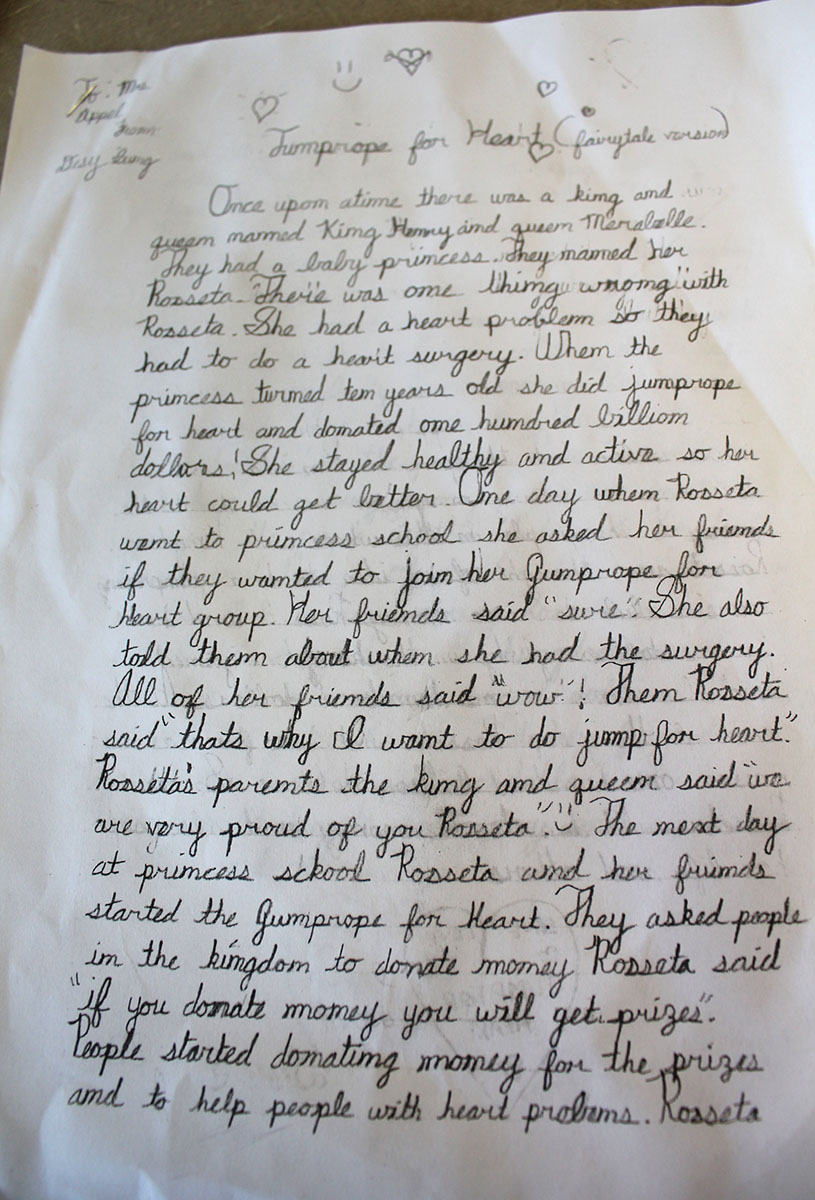 To: Mrs
Appel
from
Jumprope for Heart (fairytale version)
Once upon atime there was a king and
queen named King Henry and queen Merabelle.
They had a baby princess. They named her
Rosseta. There was one thing wrong with
Rosseta. She had a heart problem so they
had to do a heart surgery. When the
princess turned ten years old she did jumprope
for heart and donated one hundred billion
dollars! She stayed healthy and active so her
heart could get better. One day when Rosseta
went to princess school she asked her friends
if they wanted to join her Jumprope for
Heart group. Her friends said "sure". She also
told them about when she had the surgery.
All of her friends said "wow"! Then Rosseta
said "thats why I want to do jump for heart."
Rosseta's parents the king and queen said "we
are very proud of you Rosseta". The next day
at princess school Rosseta and her friends
started the Jumprope for Heart. They asked people
in the kingdom to donate money Rosseta said
"if you donate money you will get prizes".
People started donating money for the prizes
and to help people with heart problems. Rosseta